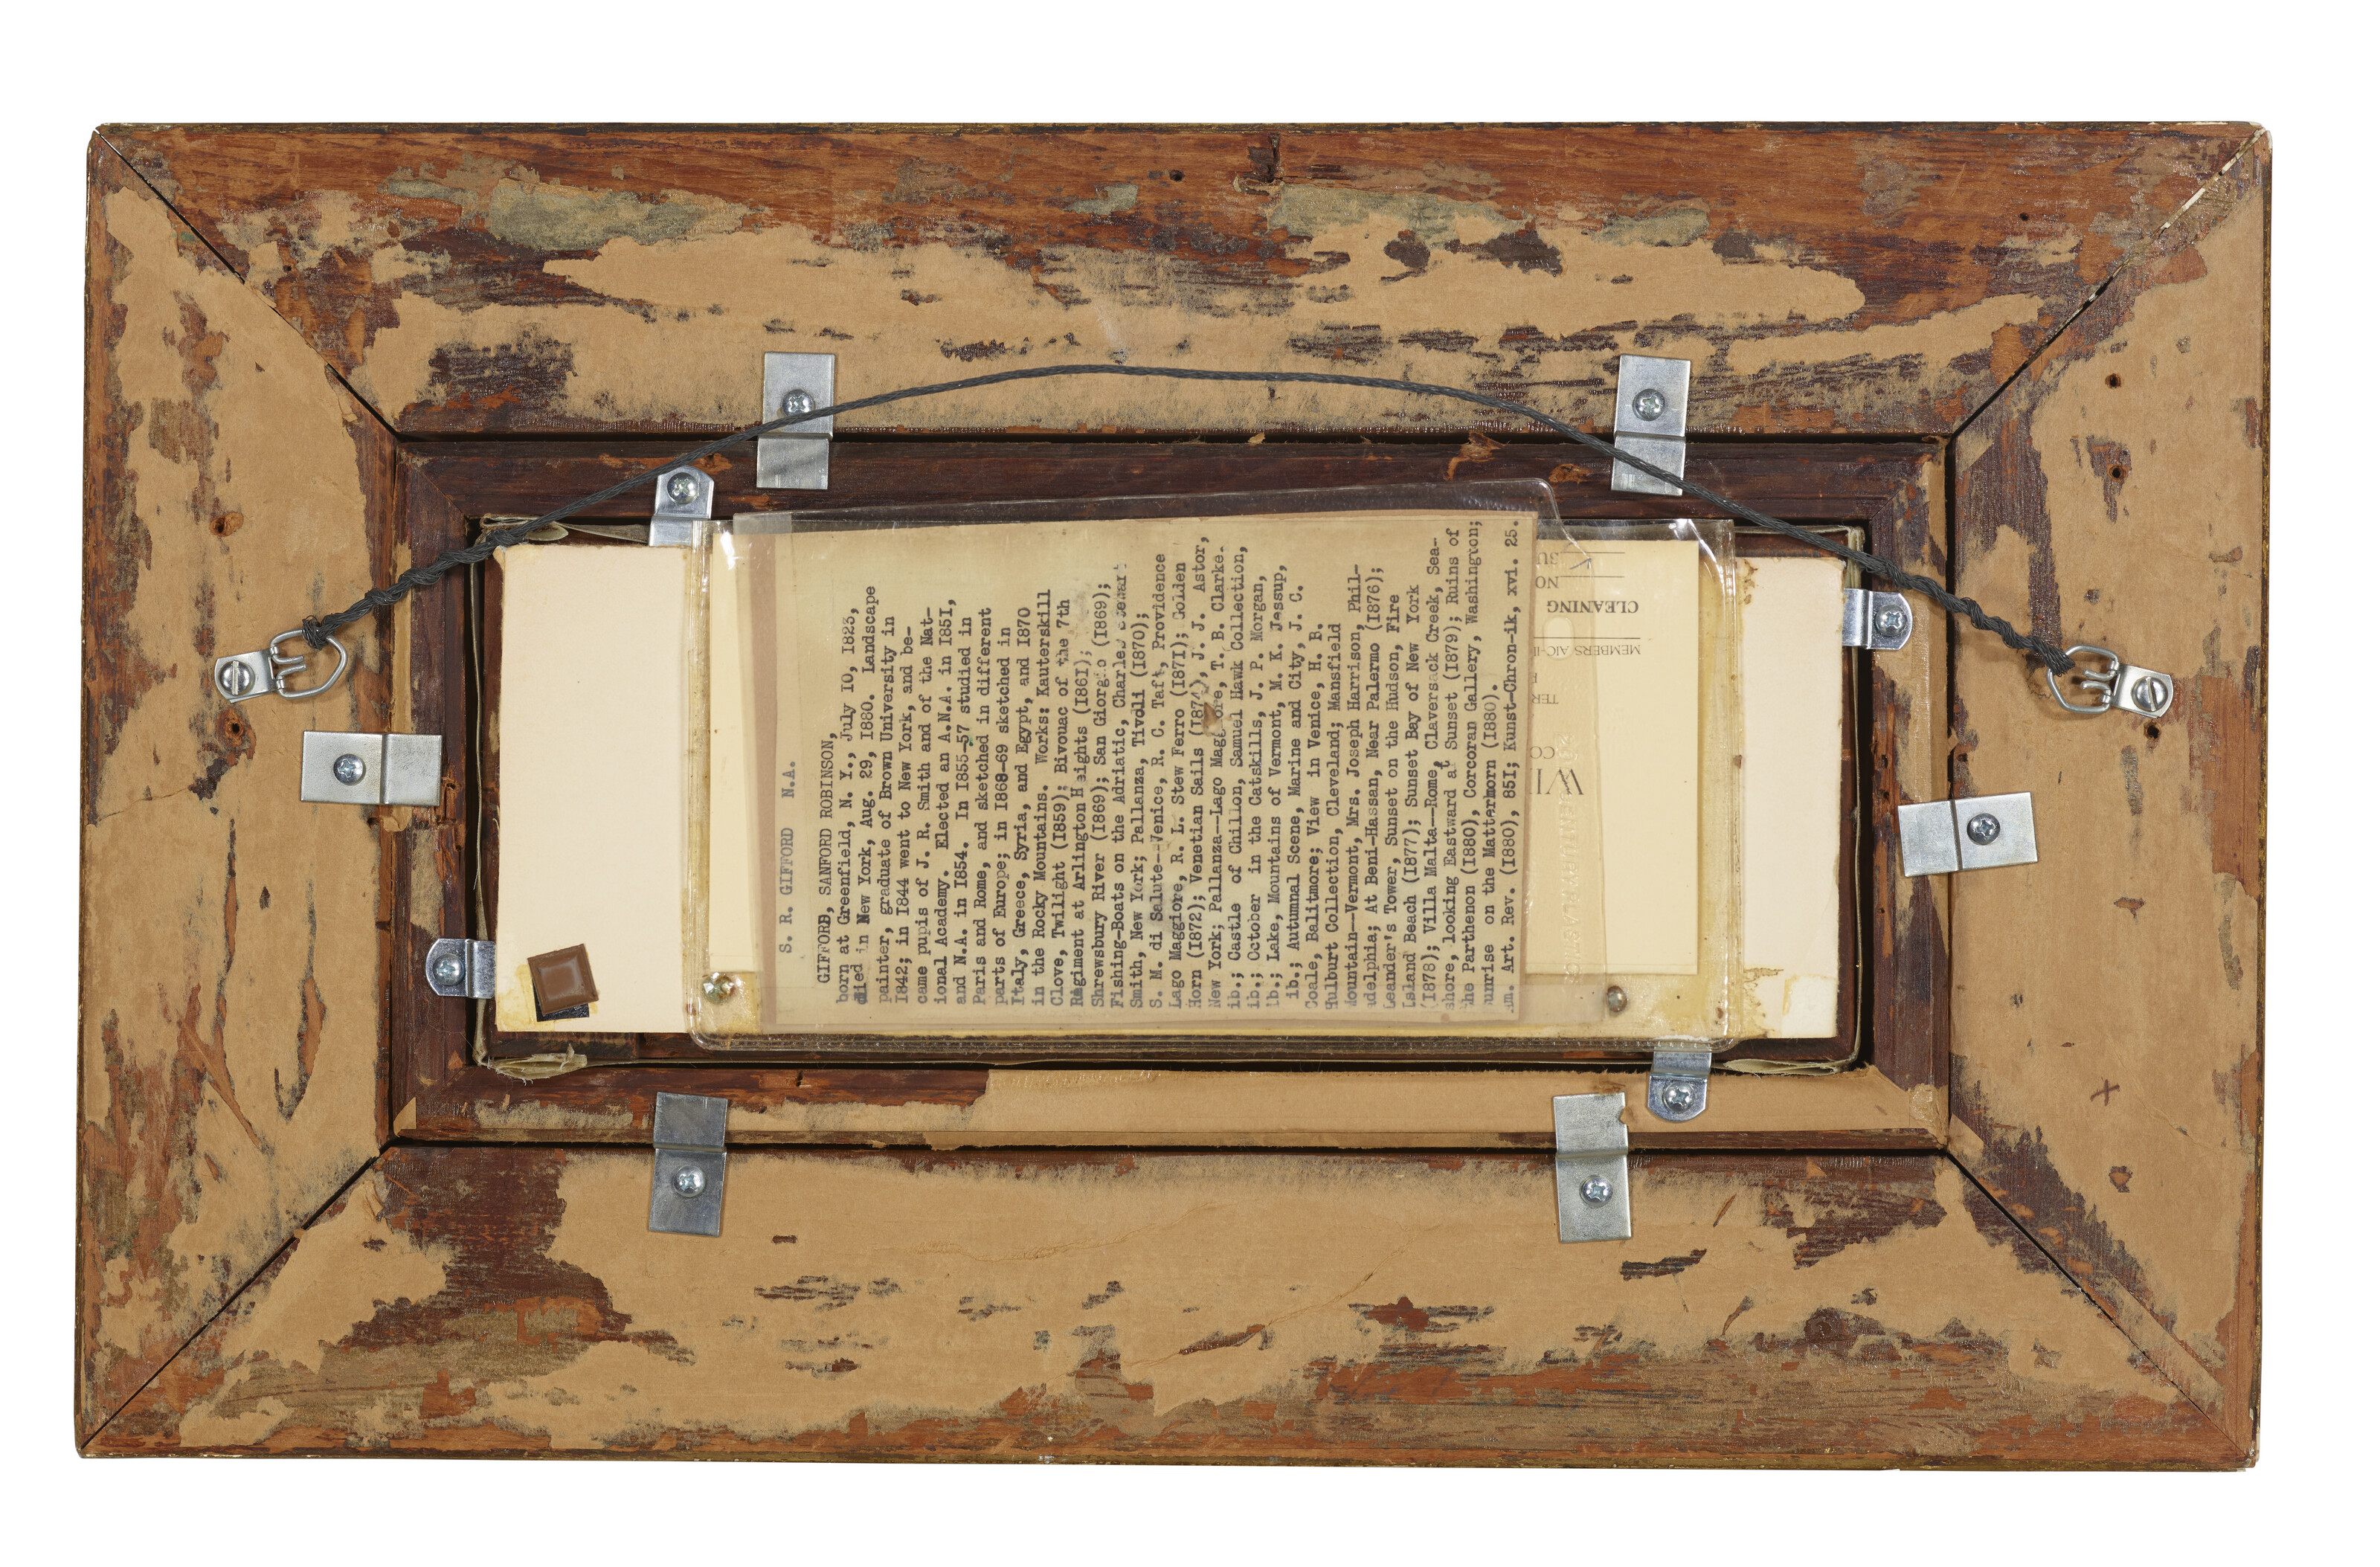 S. R. GIFFORD   N.A.
GIFFORD, SANFORD ROBINSON,
born at Greenfield, N. Y., July I0, I823,
died in New York, Aug. 29, I880. Landscape
painter, graduate of Brown University in
I842; in I844 went to New York, and be-
came pupis of J. R. Smith and of the Nat-
ional Academy. Elected an A.N.A. in I85I,
and N.A. in I854. In I855-57 studied in
Paris and Rome, and sketched in different
parts of Europe; in I868-69 sketched in
Italy, Greece, Syria, and Egypt, and I870
in the Rocky Mountains. Works: Kauterskill
Clove, Twilight (I859); Bivouac of the 7th
Regiment at Arlington Heights (I86I);
Shrewsbury River (I869); San Giorgio (I869);
Fishing-Boats on the Adriatic, Charles
Smith, New York; Pallanza, Tivoli (I870);
S. M. di Salute--Venice, R. C. Taft, Providence
Lago Maggiore, R. L. Stew Ferro (I87I); Golden
Horn (I872); Venetian Sails (I874), J. J. Astor,
New York; Pallanza--Lago Maggiore, T. B. Clarke.
ib.; Castle of Chillon, Samuel Hawk Collection,
ib.; October in the Catskills, J. P. Morgan,
ib.; Lake, Mountains of Vermont, M. K. Jessup,
ib.; Autumnal Scene, Marine and City, J. C.
Coale, Balitmore; View in Venice, H. B.
Hulburt Collection, Cleveland; Mansfield
Mountain--Vermont, Mrs. Joseph Harrison, Phil-
adelphia; At Beni-Hassan, Near Palermo (I876);
Leander's Tower, Sunset on the Hudson, Fire
Island Beach (I877); Sunset Bay of New York
(I878); Villa Malta--Rome, Claversack Creek, Sea-
shore, looking Eastward at Sunset (I879); Ruins of
the Parthenon (I880), Corcoran Gallery, Washington;
Sunrise on the Mattermorn (I880).
Am. Art. Rev. (I880), 85I; Kunst-Chron-ik, xvi. 25.
WI
CO
TER
MEMBERS AIC-I
CLEANING
NO
3U